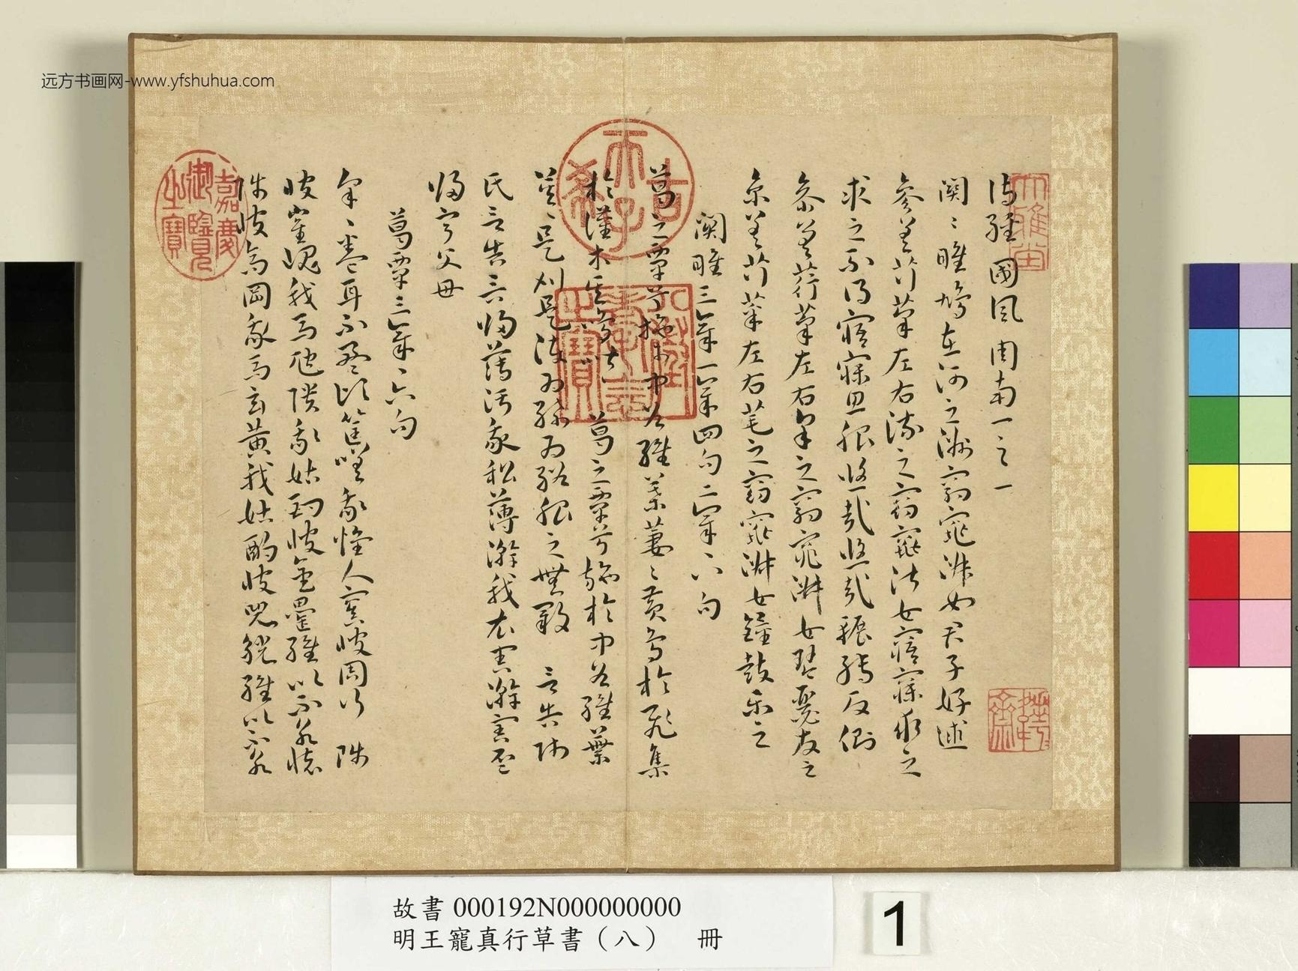 远方书画网-www.yfshuhua.com
詩經國風周南一之一
關〻雎鳩在河之洲窈窕淑女君子好逑
參差荇菜左右流之窈窕淑女寤寐求之
求之不得寤寐思服悠哉悠哉輾轉反側
參差荇菜左右采之窈窕淑女琴瑟友之
參差荇菜左右芼之窈窕淑女鐘鼓樂之
關雎三章一章四句二章八句
葛之覃兮施于中谷維葉萋〻黃鳥于飛集
于灌木其鳴喈〻 葛之覃兮施于中谷維葉
莫〻是刈是濩為絺為綌服之無斁 言告師
氏言告言歸薄污我私薄澣我衣害澣害否
歸寧父母
葛覃三章〻六句
采〻卷耳不盈頃筐嗟我懷人寘彼周行 陟
彼崔嵬我馬虺隤我姑酌彼金罍維以不永懷
陟彼高岡我馬玄黃我姑酌彼兕觥維以不永
嘉慶御覽之寶
古希天子
壽
之寶
故書 000192N000000000
明王寵真行草書（八） 冊
1